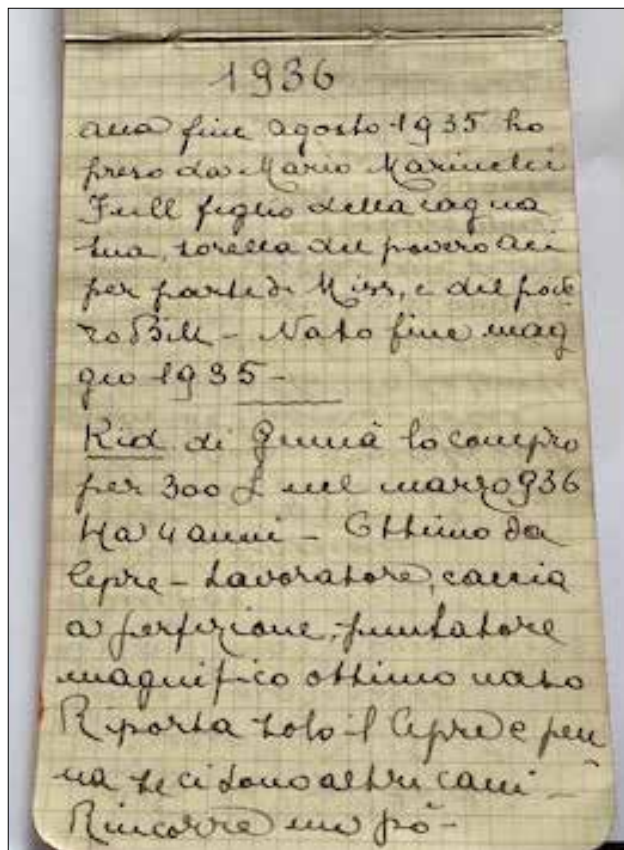 1936
alla fine agosto 1935 ho
preso da Mario Marinelli
Full figlio della cagna
sua, sorella del povero Aci
per parte di Miss, e del pove
ro Bill - Nato fine mag
gio 1935 -
Kid di Gunnà lo compro
per 300 £ nel marzo 936
Ha 4 anni - Ottimo da
lepre - Lavoratore, caccia
a perfezione, puntatore
magnifico ottimo naso
Riporta solo il lepre e pen
na se ci sono altri cani -
Rincorre un pò -